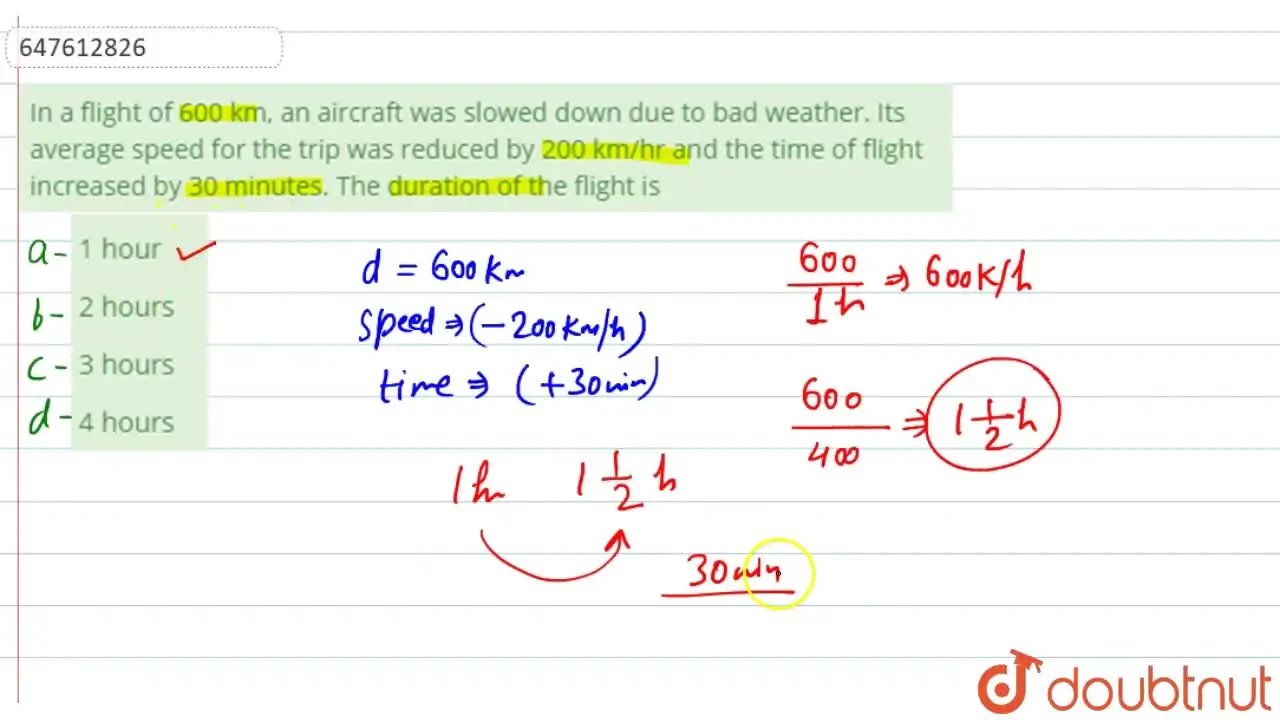 647612826
In a flight of 600 km, an aircraft was slowed down due to bad weather. Its
average speed for the trip was reduced by 200 km/hr and the time of flight
increased by 30 minutes. The duration of the flight is
a- 1 hour
b- 2 hours
c- 3 hours
d- 4 hours
d = 600 Km
Speed ⇒ (-200 Km/h)
time ⇒ (+30 min)
600/1h ⇒ 600K/h
600/400 ⇒ 1 1/2 h
1 hr 1 1/2 h
30 min
doubtnut